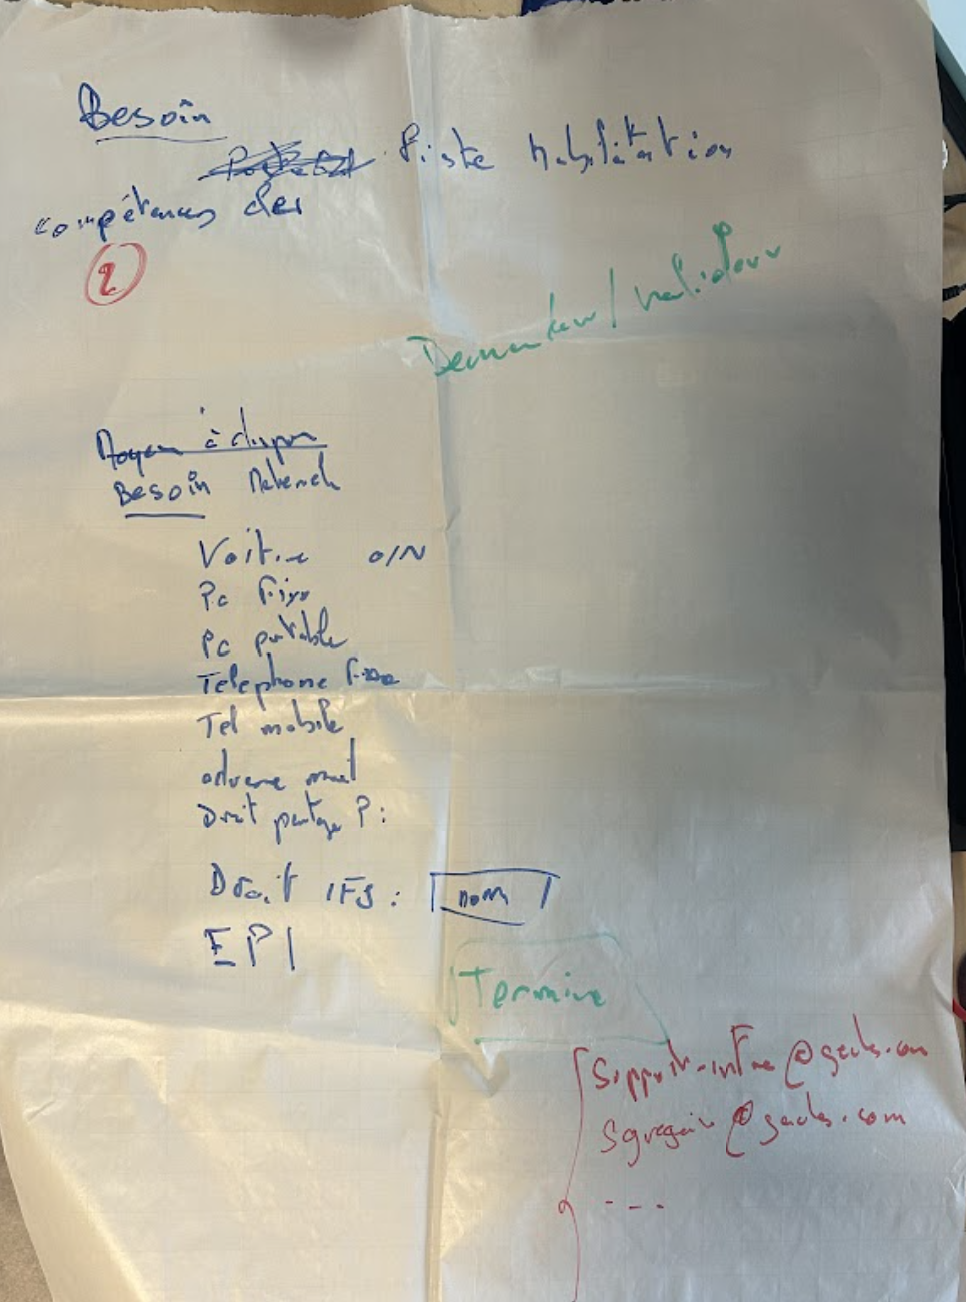 Besoin
Liste habilitation
compétences des
2
Demandeur / valideur
Moyen à dispo
Besoin Materiel
Voiture O/N
Pc fixe
Pc portable
Telephone fixe
Tel mobile
adresse mail
Droit partage P:
Droit IFS: nom
EPI
Terminé